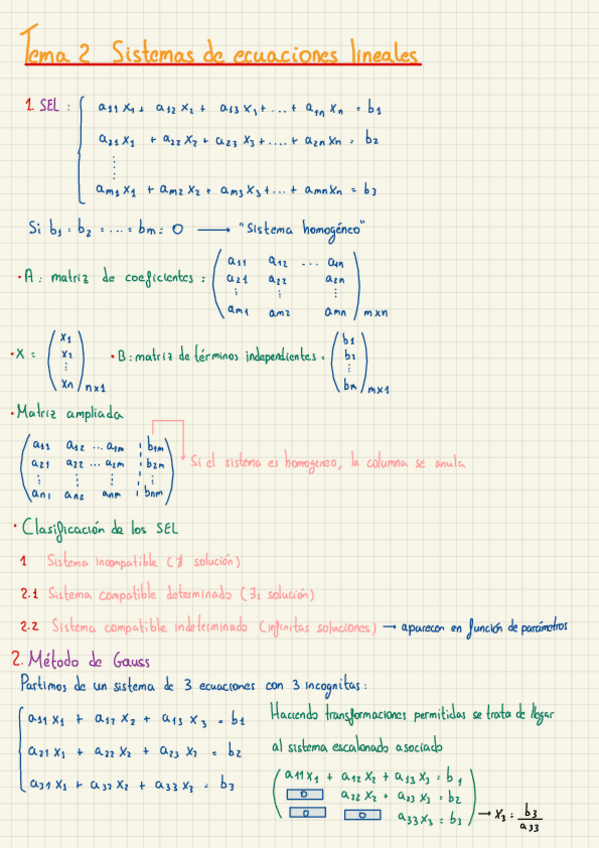 Tema 2 Sistemas de ecuaciones lineales
1. SEL : { a11 x1 + a12 x2 + a13 x3 + ... + a1n xn = b1
a21 x1 + a22 x2 + a23 x3 + .... + a2n xn = b2
⋮
am1 x1 + am2 x2 + am3 x3 + ... + amn xn = b3
Si b1 = b2 = ... = bm = 0 → "Sistema homogéneo"
· A : matriz de coeficientes = ( a11 a12 ... a1n
a21 a22 a2n
⋮ ⋮ ⋮
am1 am2 amn ) mxn
· X = ( x1 x2 ⋮ xn ) nx1 · B : matriz de términos independientes = ( b1 b2 ⋮ bm ) mx1
· Matriz ampliada
( a11 a12 ... a1m | b1m
a21 a22 ... a2m | b2m → Si el sistema es homogeneo, la columna se anula
⋮ ⋮ ⋮ ⋮
an1 an2 anm | bnm )
· Clasificación de los SEL
1 Sistema incompatible (∄ solución)
2.1 Sistema compatible determinado (∃1 solución)
2.2 Sistema compatible indeterminado (infinitas soluciones) → aparecen en función de parámetros
2. Método de Gauss
Partimos de un sistema de 3 ecuaciones con 3 incognitas:
{ a11 x1 + a12 x2 + a13 x3 = b1
a21 x1 + a22 x2 + a23 x3 = b2
a31 x1 + a32 x2 + a33 x3 = b3
Haciendo transformaciones permitidas se trata de llegar
al sistema escalonado asociado
( a11 x1 + a12 x2 + a13 x3 = b1
0 a22 x2 + a23 x3 = b2
0 0 a33 x3 = b3 ) → x3 = b3 / a33